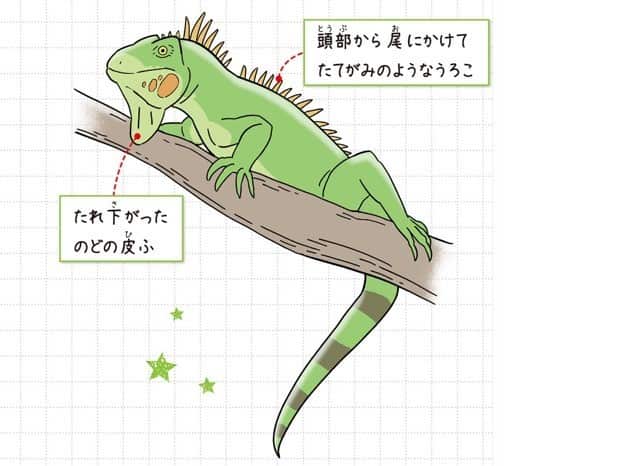 頭部から尾にかけて
たてがみのようなうろこ
たれ下がった
のどの皮ふ